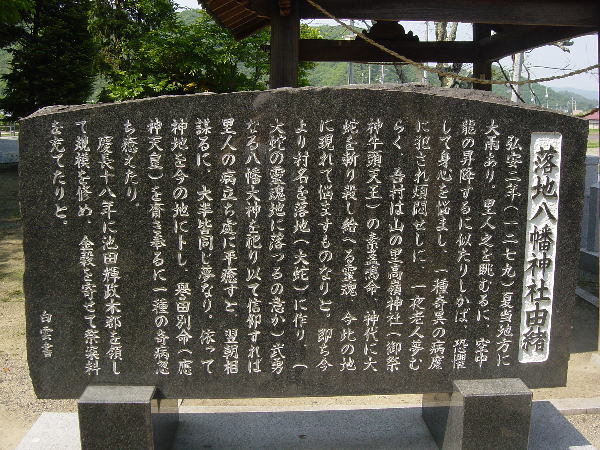 落地八幡神社由緒
弘安二年(一二七九)夏当地方に
大雨あり。里人之を眺むるに、空中
龍の昇降するに似たりしかば、恐懼
して身心を悩まし、一種奇異の病魔
に犯され煩悶せしに、一夜老人夢む
らく、吾村は山の里高嶺神社(御祭
神牛頭天王)の素盞嗚命、神代に大
蛇を斬り殺し給へる霊魂、今此の地
に現れて悩ますものなりと、即ち今
より村名を落地(大蛇)に作り、(
大蛇の霊魂地に落つるの意か)武勇
なる八幡大神を祀り以て信仰すれば
里人の病立ち處に平癒すと、翌朝相
謀るに、大半皆同じ夢なり。依って
神地を今の地に卜し、誉田別命(應
神天皇)を齋き奉るに一種の奇病忽
ち癒えたり。
慶長十八年に池田輝政本郡を領し
て規模を修め、金穀を寄せて祭楽料
を充てたりと。
白雲書